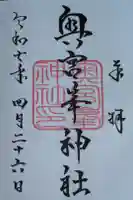 奉拝
奥宮峯神社
令和七年四月二十六日